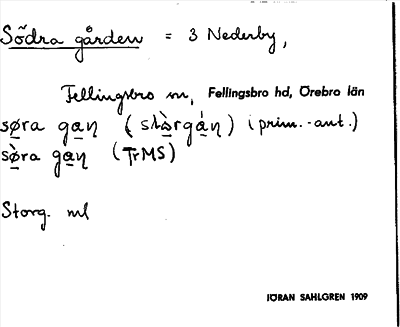 Södra gården = 3 Nederby,
Fellingsbro sn, Fellingsbro hd, Örebro län
søra gaꞑ (stòrgáꞑ) (prim.-ant.)
sø̀ra gaꞑ (TrMS)
Storg. ml
JÖRAN SAHLGREN 1909